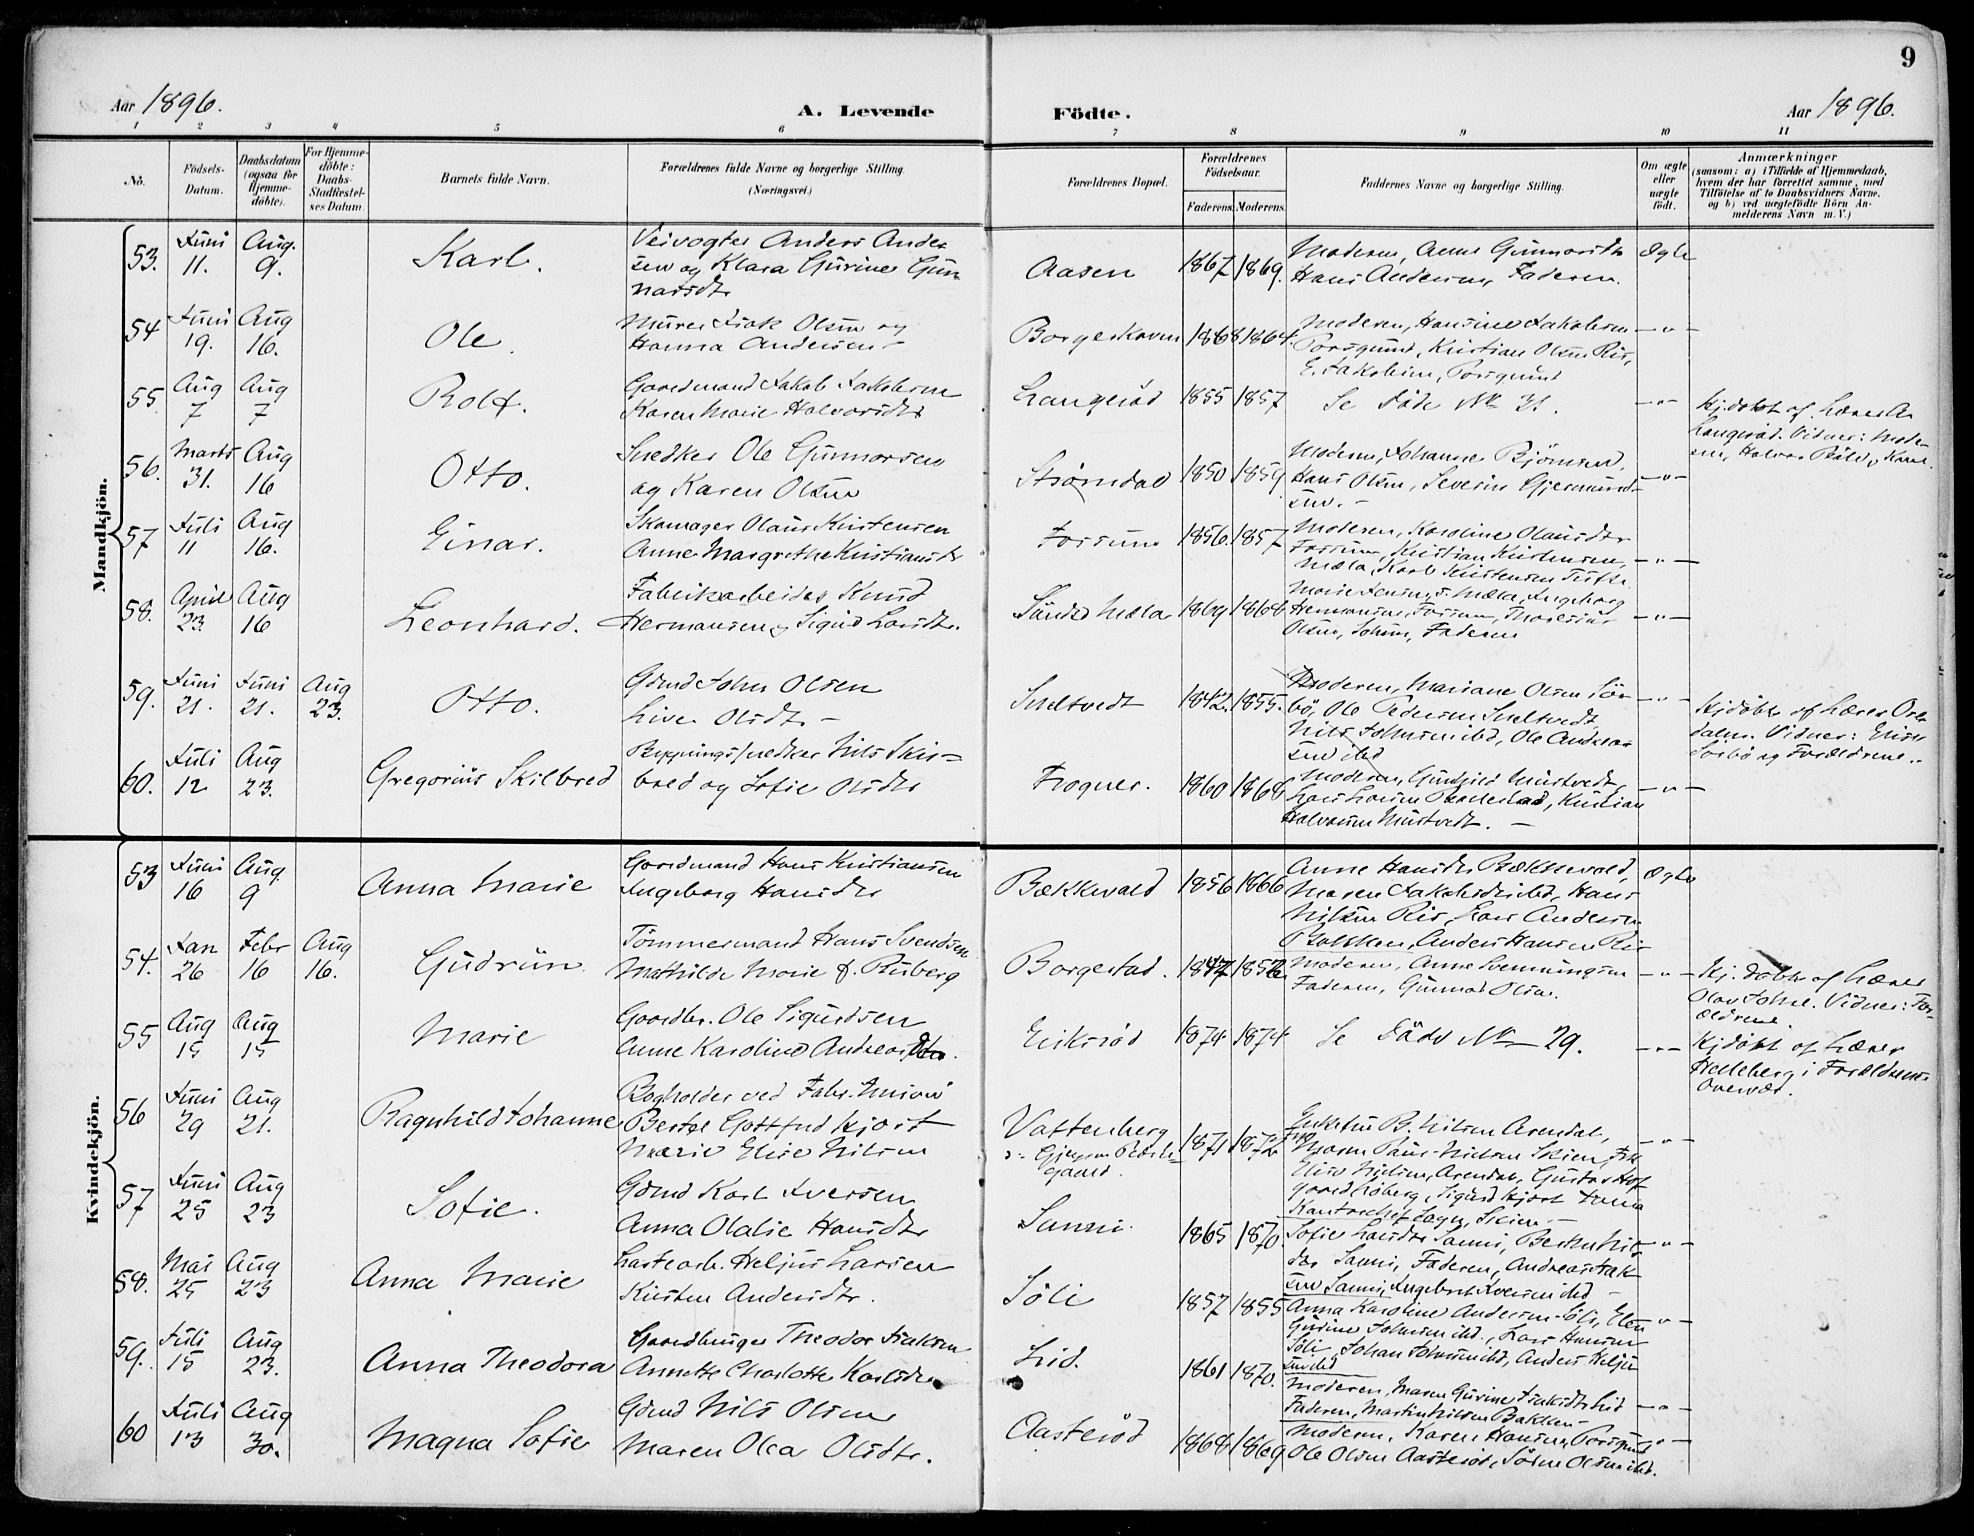 9
Aar 1896.
A. Levende Födte.
Aar 1896.
1 2 3 4 5 6 7 8 9 10 11
No.
Födsels-Datum.
Daabsdatum (ogsaa for Hjemme-döbte).
For Hjemme-döbte: Daabs-Stadfæstel-ses Datum.
Barnets fulde Navn.
Forældrenes fulde Navne og borgerlige Stilling. (Næringsvei.)
Forældrenes Bopæl.
Forældrenes Födselsaar.
Faderens. Moderens.
Faddernes Navne og borgerlige Stilling.
Om ægte eller uægte født.
Anmærkninger
(saasom: a) i Tilfælde af Hjemmedaab,
hvem der har forrettet samme, med
Tilföielse af to Daabsvidners Navne,
og b) ved uægtefödte Börn An-
melderens Navn m. V.)
Mandkjön.
53. Juni 11. Aug. 9. Karl.
Veivogter Anders Ander
sen og Klara Gurine Gun
narsdtr
Aasen 1867 1869.
Moderen, Anne Gunnarsdtr
Hans Andersen, Faderen.
Ægte
54 Juni 19. Aug 16. Ole.
Murer Isak Olsen og
Hanna Andersen
Borgeskoven 1868 1864.
Moderen, Hansine Jakobsen
Porsgrund, Kristian Olsen Ris,
E. Jakobsen, Porsgrund
— " —
55 Aug 7 Aug 7 Rolf.
Gaardmand Jakob Jakobsen
Karen Marie Halvorsdtr
Langerød 1855 1857
Se Døde No 31.
— " —
Hj.døbt af Lærer A.
Langerød. Vidner: Mode-
ren, Halvor
56. Marts 31. Aug 16 Otto.
Snedker Ole Gunnarsen
og Karen Olsen
Strømdal 1850 1859
Moderen, Johanne Bjørnsen,
Hans Olsen, Severin Gjermund-
sen. —
— " —
57 Juli 11 Aug 16. Einar.
Skomager Olaus Kristensen
Anne Margrethe Kristiansdtr
Fossum 1856. 1857
Moderen, Karoline Olausdtr
Fossum, Kristian Kristensen,
Mæla, Karl Kristensen Tufte
— " —
58. April 23. Aug 16 Leonhard.
Fabrikarbeider Knud
Hermansen & Sigrid Larsdtr.
Søndre Mæla 1869 1868
Marie Jensen, S. Mæla, Ingeborg
Hermansen, Fossum,
Olsen, Faderen
— " —
59. Juni 21. Juni 21. Aug 23. Otto.
Gmd John Olsen
Live Olsdtr —
Sneltvedt 1842. 1855.
Moderen, Mariane Olsen Sør
bø, Ole Pedersen Sneltvedt
Nils Johnsen ibd, Ole Andreas
sen ibd
— " —
Hj.døbt af Lærer Over
dalen. Vidner: Elise
Sørbø og Forældrene.
60. Juli 12 Aug 23. Gregorius Skilbred
Bygningssnedker Nils Skil-
bred og Sofie Olsdtr
Frogner. 1860 1868
Moderen, Gunhild Mustvedt
Lars Larsen, Kristian
Halvorsen Mustvedt. —
— " —
Kvindekjön.
53 Juni 16 Aug. 9 Anna Marie
Gaardmand Hans Kristiansen
Ingeborg Hansdtr
Bækkevold 1856 1866
Anne Hansdtr Bækkevold,
Maren Jakobsdtr ibd, Hans
Nilsen Ris, Lars Andersen
Bakken, Anders Hansen Ris
Ægte
54. Jan 26 Febr 16 Aug 16. Gudrun
Tømmermand Hans Svendsen
Mathilde Marie f. Ruberg
Borgestad. 1847 1856
Moderen, Anne Svennungsen
Faderen, Gunnar Olsen.
— " —
Hj. døbt af Lærer
Olav Johns. Vidner: For-
ældrene.
55 Aug 15 Aug 15 Marie
Gaardbr. Ole Sigurdsen
Anne Karoline Andreasdtr.
Eriksrød 1874 1874
Se Døde No 29.
— " —
Hj.døbt af Lærer
Helleberg i Forældrenes
Overvær.
56 Juni 29 Aug 21. Ragnhild Johanne
Bogholder ved Fabr. Union
Bertel Gottfred Kjort
Marie Elise Nilsen
Vattenberg
Gjerpen Præste-
gaard.
1871 1872
B. Nilsen Arendal,
Maren Paus Nilsen Skien, Frk
Elise Nielsen, Arendal, Gustav Hof
gaard Søberg, Sigurd Kjort
Kontorchef Skien —
— " —
57 Juni 25 Aug 23 Sofie.
Gmd Karl Iversen
Anna Olalie Hansdtr
Sanni. 1865 1870
Sofie Larsdtr Sanni,
Sanni, Faderen, Andreas Isak
sen Sanni, Ingebret Iversen ibd —
— " —
58. Mai 25 Aug 23 Anna Marie
Lastearb. Heljus Larsen
Kirsten Andersdtr.
Søli 1857 1855
Anna Karoline Andersen Søli, Elen
Gurine Johnsen ibd., Lars Hansen
Søli, Johan Johnsen ibd, Anders Helju
sen ibd
" —
59. Juli 15 Aug 23. Anna Theodora
Gaardbruger Theodor Isaksen
Annette Charlotte Karlsdtr
Lid. 1861 1870.
Moderen, Maren Gurine Isaksdtr Lid
Faderen, Martin Nilsen Bakken —
— " —
60 Juli 13 Aug 30. Magna Sofie
Gmd Nils Olsen
Maren Olea Olsdtr.
Aasterød 1868 1869
Moderen, Karen Hansen, Porsgrund
Ole Olsen Aasterød, Søren Olsen ibd.
" —